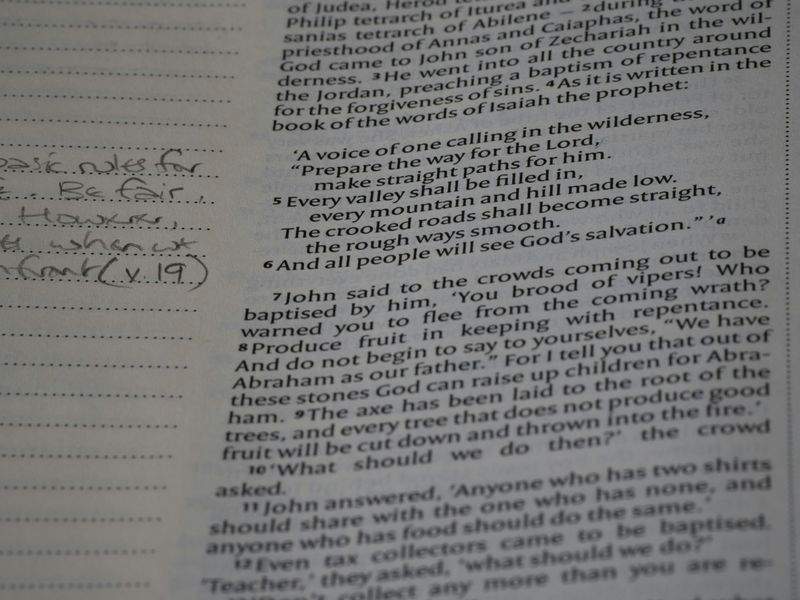 basic rules for
Be fair,
However,
when we
(v. 19)
of Judea, Herod
Philip tetrarch of Iturea and
sanias tetrarch of Abilene – ²during
priesthood of Annas and Caiaphas, the word of
God came to John son of Zechariah in the wil-
derness. ³He went into all the country around
the Jordan, preaching a baptism of repentance
for the forgiveness of sins. ⁴As it is written in the
book of the words of Isaiah the prophet:
‘A voice of one calling in the wilderness,
“Prepare the way for the Lord,
make straight paths for him.
⁵Every valley shall be filled in,
every mountain and hill made low.
The crooked roads shall become straight,
the rough ways smooth.
⁶And all people will see God’s salvation.” ’ᵃ
⁷John said to the crowds coming out to be
baptised by him, ‘You brood of vipers! Who
warned you to flee from the coming wrath?
⁸Produce fruit in keeping with repentance.
And do not begin to say to yourselves, “We have
Abraham as our father.” For I tell you that out of
these stones God can raise up children for Abra-
ham. ⁹The axe has been laid to the root of the
trees, and every tree that does not produce good
fruit will be cut down and thrown into the fire.’
¹⁰‘What should we do then?’ the crowd
asked.
¹¹John answered, ‘Anyone who has two shirts
should share with the one who has none, and
anyone who has food should do the same.’
¹²Even tax collectors came to be baptised.
‘Teacher,’ they asked, ‘what should we do?’
collect any more than you are re-